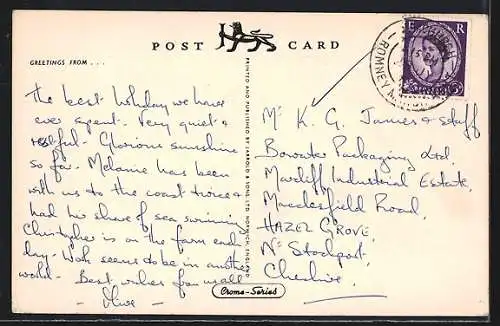 POST CARD
GREETINGS FROM . . .
The best holiday we have
ever spent. Very quiet &
restful. Glorious sunshine
so far. Melanie has been
with us to the coast twice &
had her share of sea swimming
Christopher is on the farm each
day. Work seems to be in another
world. Best wishes from all
- Olive -
PRINTED AND PUBLISHED BY JARROLD & SONS LTD. NORWICH, ENGLAND
Mr K. G. James & staff
Bowater Packaging Ltd.
Industrial Estate,
Macclesfield Road,
HAZEL GROVE,
Nr Stockport,
Cheshire.
E R
ROMNEY
Crome-Series